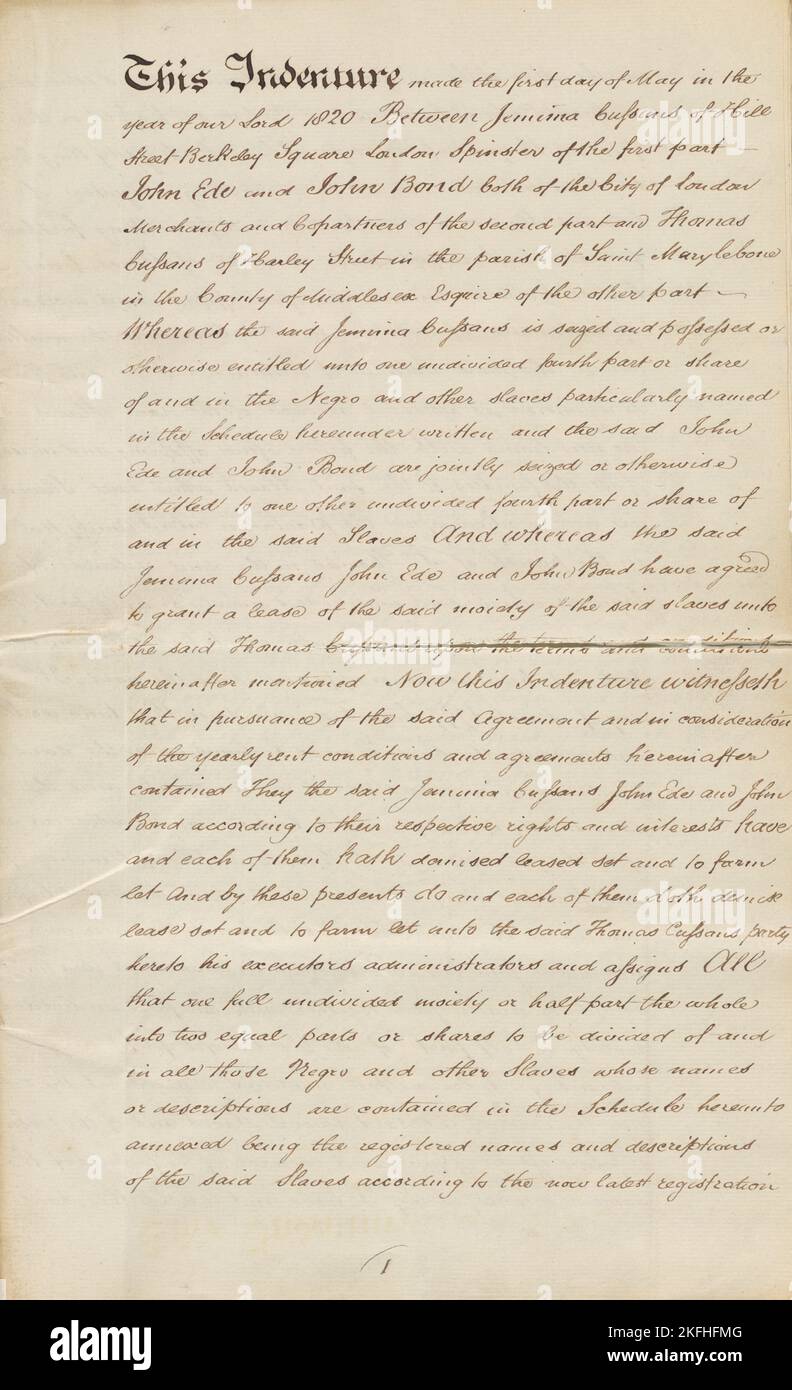 This Indenture made the first day of May in the
year of our Lord 1820 Between Jemima Cuſsans of Hill
Street Berkeley Square London Spinster of the first part
John Ede and John Bond both of the City of London
Merchants and Copartners of the second part and Thomas
Cuſsans of Harley Street in the parish of Saint Marylebone
in the County of Middlesex Esquire of the other part
Whereas the said Jemima Cuſsans is seized and poſsessed or
otherwise entitled unto one undivided fourth part or share
of and in the Negro and other slaves particularly named
in the Schedule hereunder written and the said John
Ede and John Bond are jointly seized or otherwise
intitled to one other undivided fourth part or share of
and in the said Slaves And whereas the said
Jemima Cuſsans John Ede and John Bond have agreed
to grant a lease of the said moiety of the said slaves unto
the said Thomas Cuſsans upon the terms and conditions
hereinafter mentioned Now this Indenture witneſseth
that in pursuance of the said Agreement and in consideration
of the yearly rent conditions and agreements hereinafter
contained They the said Jemima Cuſsans John Ede and John
Bond according to their respective rights and interests have
and each of them hath demised leased set and to farm
let And by these presents do and each of them doth demise
lease set and to farm let unto the said Thomas Cuſsans party
hereto his executors administrators and aſsigns All
that one full undivided moiety or half part the whole
into two equal parts or shares to be divided of and
in all those Negro and other Slaves whose names
or descriptions are contained in the Schedule hereunto
annexed being the registered names and descriptions
of the said Slaves according to the now latest registration
1
alamy
Image ID: 2KFHFMG
www.alamy.com